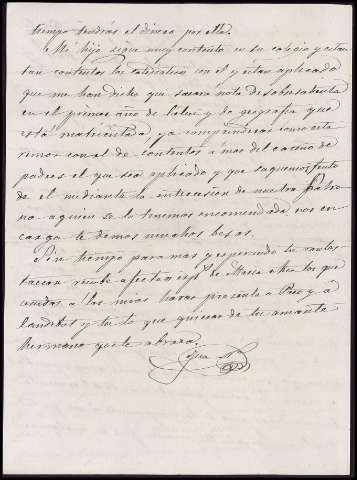 tiempo tendrás el dinero por ella.
Mi hijo sigue muy contento en su colegio y estan
tan contentos los catedraticos con el y es tan aplicado
que me han dicho que sacará nota de sobresaliente
en el primer año de latin y de geografia que
está matriculado, ya comprenderas como esta
remos con el de contentos a mas del cariño de
padres el que sea aplicado y que saquemos fruto
de el mediante la intercesion de nuestro Patro
no a quien se lo tenemos encomendado, nos en
carga te demos muchos besos.
Sin tiempo para mas y esperando tu contes
tacion recibe afectos de Maria que
unidos a los mios haras presente a Paco y a
y tu lo que quieras de tu amante
hermano que te abraza.